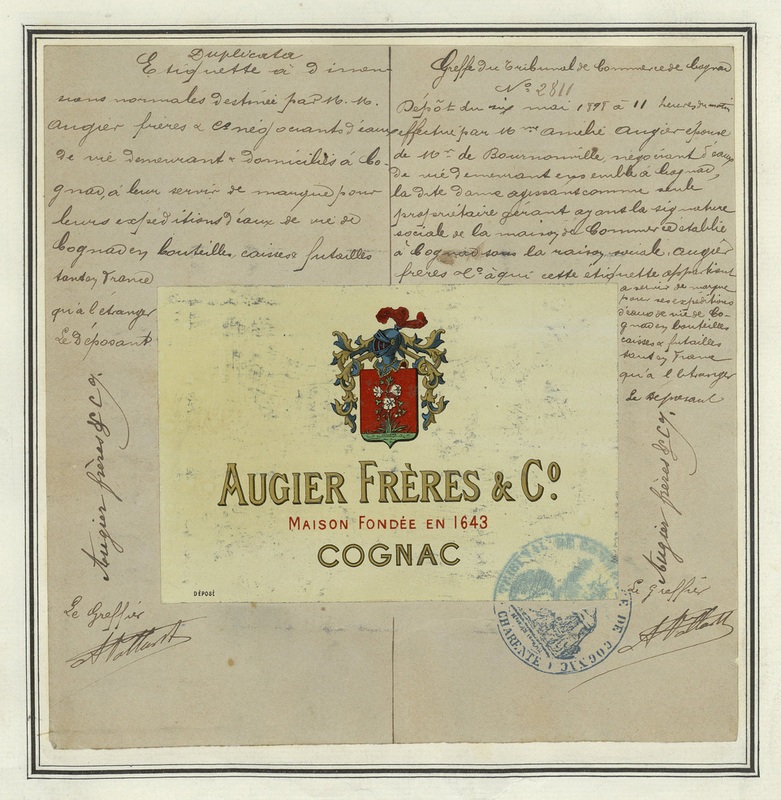 Duplicata
Etiquette à dimen-
sions normales destinée par M. M.
Augier frères & Co négociants d'eaux
de vie demeurant & domiciliés à Co-
gnac, à leur servir de marque pour
leurs expéditions d'eaux de vie de
Cognac en bouteilles, caisses & futailles
tant en France
qu'à l'etranger
Le Déposant
Augier frères & Co.
Le Greffier
Greffe du Tribunal de Commerce de Cognac
No 2811
Dépôt du six mai 1898 à 11 heures du matin
effectué par Mme Amélie Augier épouse
de Mr de Bournonville, négociant d'eaux
de vie demeurant ensemble à Cognac,
la dite dame agissant comme seule
propriétaire gérant ayant la signature
sociale de la maison de Commerce établie
à Cognac sous la raison sociale, Augier
frères & Co à qui cette étiquette appartient
a servir de marque
pour ses expéditions
d'eaux de vie de Co-
gnac en bouteilles
caisses & futailles
tant en France
qu'à l'etranger
Le Déposant
Augier frères & Co.
Le Greffier
AUGIER FRÈRES & Co.
MAISON FONDÉE EN 1643
COGNAC
DÉPOSÉ
TRIBUNAL DE COMMERCE DE COGNAC
CHARENTE